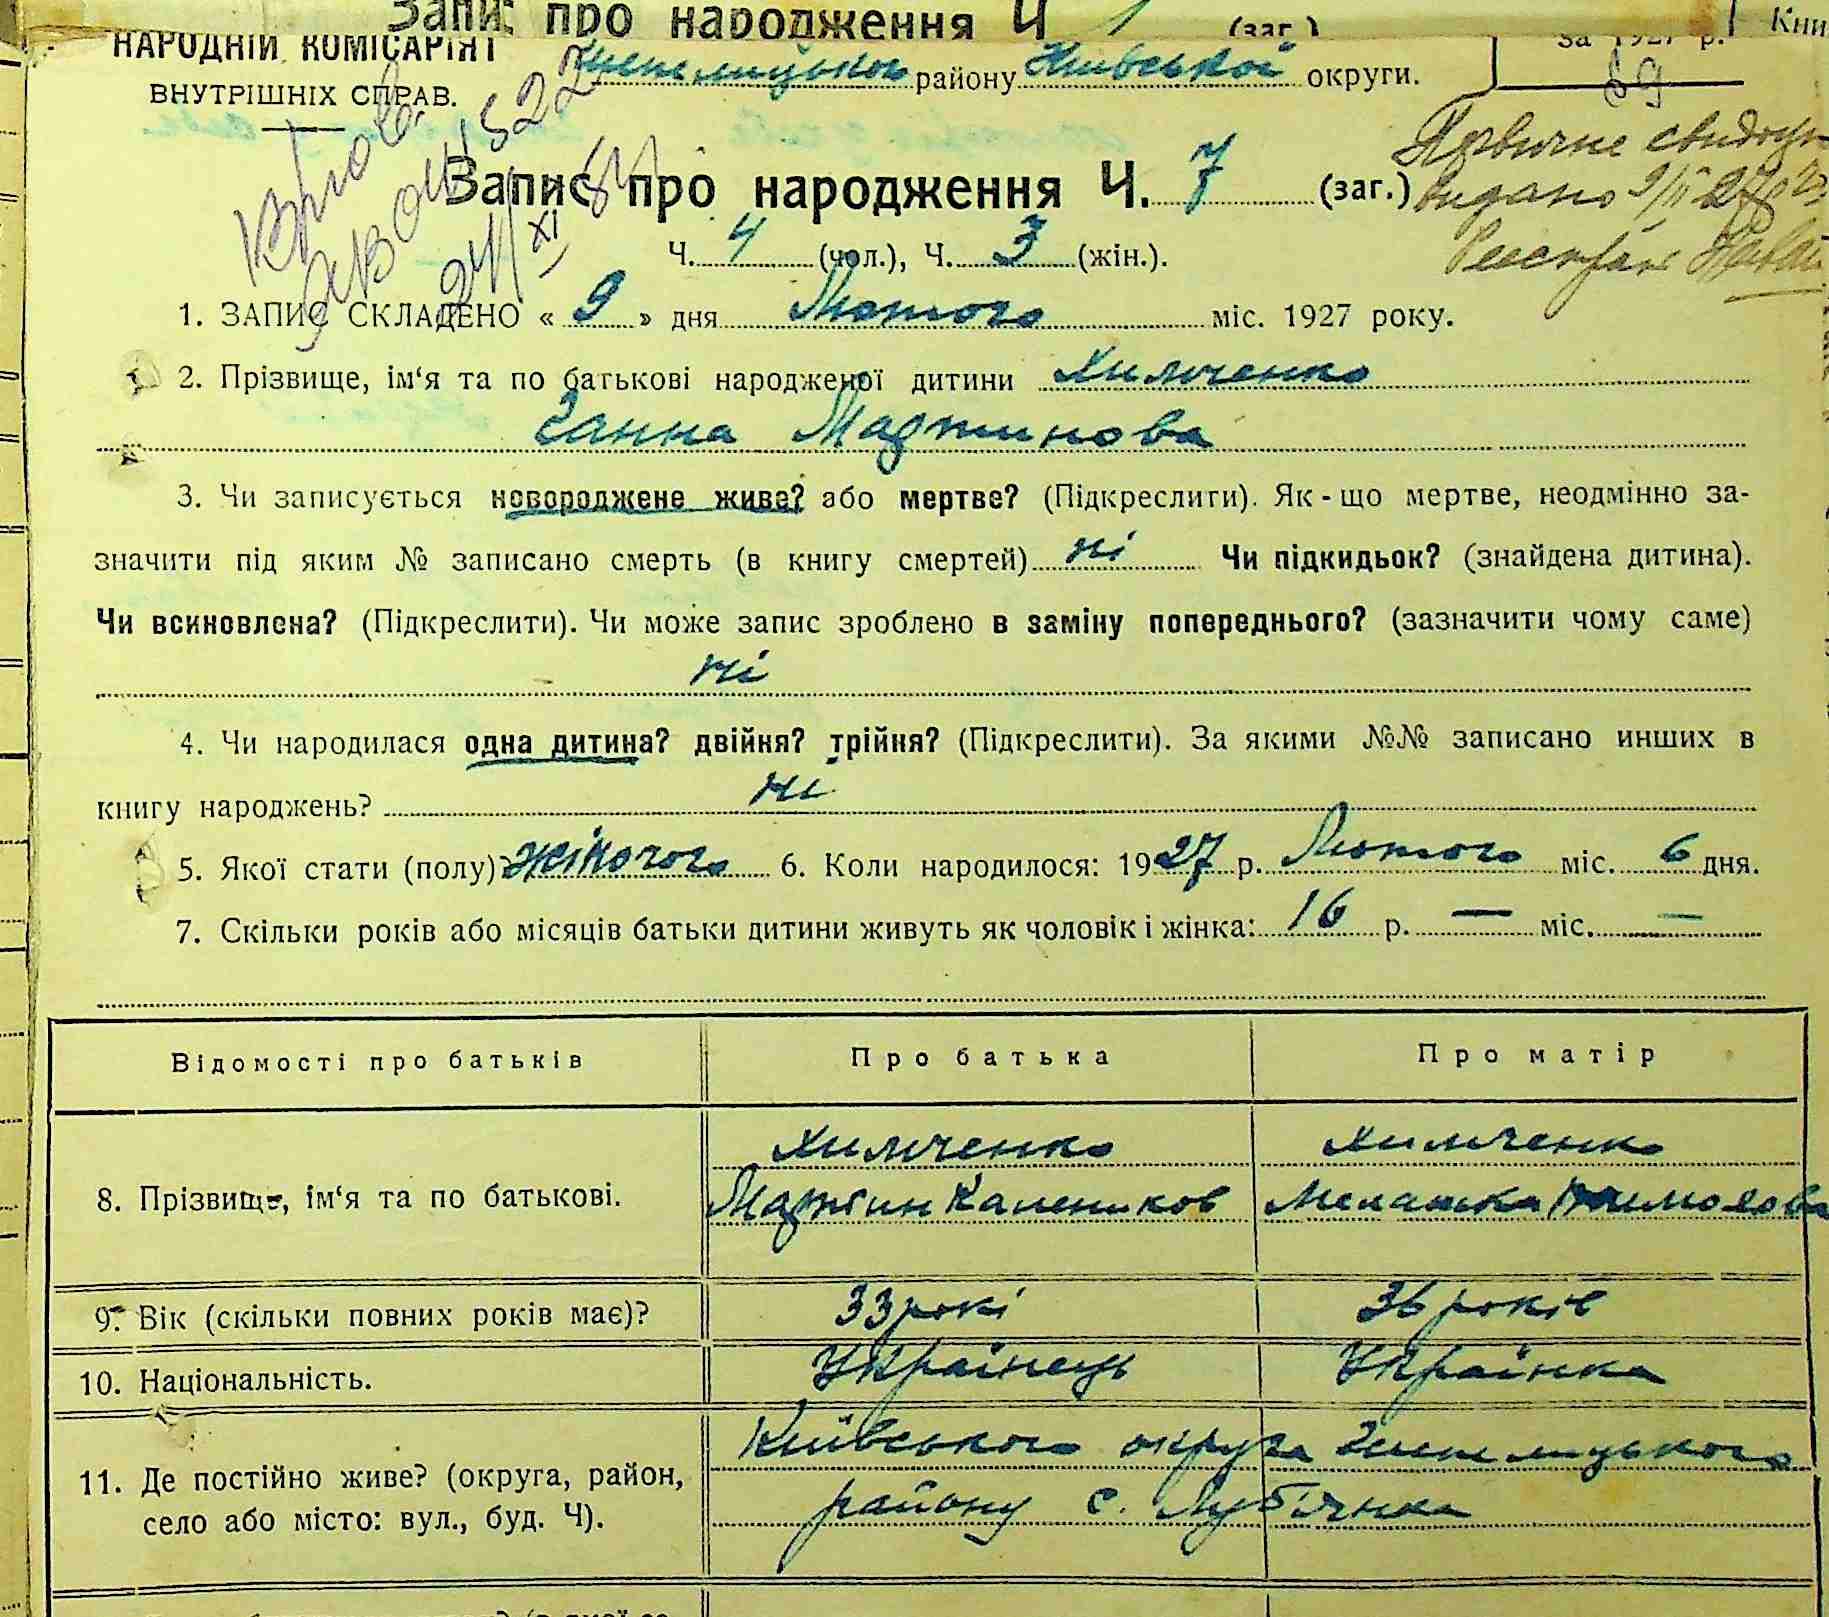 Запис про народження Ч 1 (заг.) Кни
НАРОДНІЙ КОМІСАРІЯТ
ВНУТРІШНІХ СПРАВ.
району Київської округи.
за 1927 р.
69
Запис про народження Ч. 7 (заг.)
Первичне свидоцт
видано 9/II 27
Ч. 4 (чол.), Ч. 3 (жін.).
24/XI
1. ЗАПИС СКЛАДЕНО « 9 » дня Лютого міс. 1927 року.
2. Прізвище, ім‘я та по батькові народженої дитини Химченко
Ганна Мартинова
3. Чи записується новороджене живе? або мертве? (Підкреслити). Як-що мертве, неодмінно за-
значити під яким № записано смерть (в книгу смертей) ні Чи підкидьок? (знайдена дитина).
Чи всиновлена? (Підкреслити). Чи може запис зроблено в заміну попереднього? (зазначити чому саме)
ні
4. Чи народилася одна дитина? двійня? трійня? (Підкреслити). За якими №№ записано инших в
книгу народжень? ні
5. Якої стати (полу)? жіночого 6. Коли народилося: 1927 р. Лютого міс. 6 дня.
7. Скільки років або місяців батьки дитини живуть як чоловік і жінка: 16 р. — міс. —
Відомості про батьків Про батька Про матір
8. Прізвище, ім‘я та по батькові.
Химченко
Мартин Калеников
Химченко
Мелашка
9. Вік (скільки повних років має)? 33 рокі 36 років
10. Національність. Українець Українка
11. Де постійно живе? (округа, район,
село або місто: вул., буд. Ч).
Київського округа
району с. Лубянка